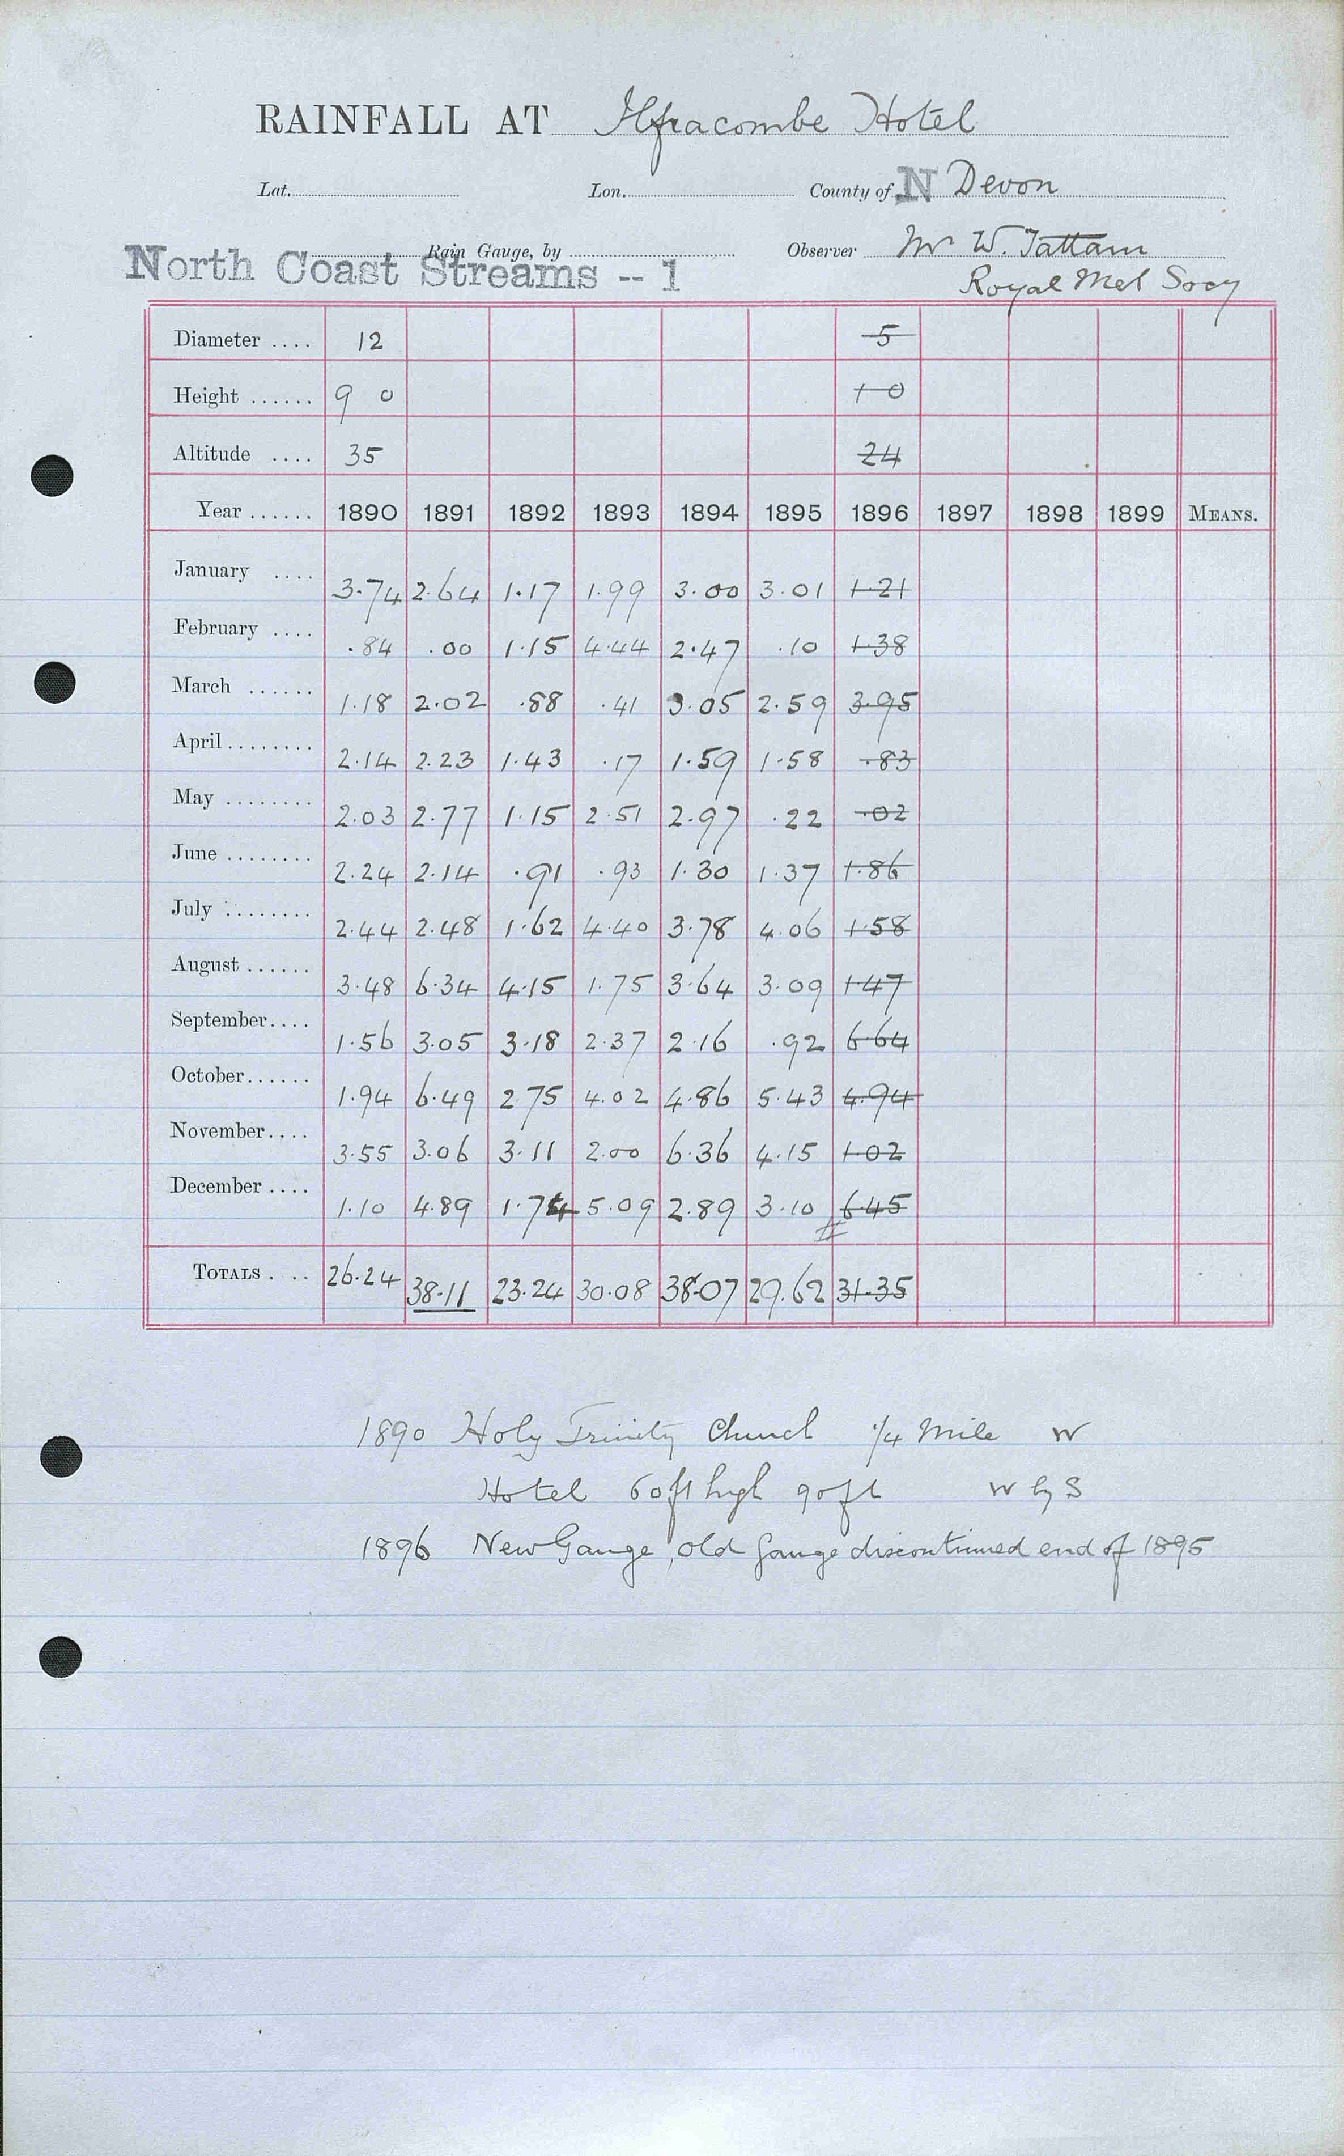 RAINFALL AT Ilfracombe Hotel
Lat. Lon. County of N Devon
Rain Gauge, by Observer Mr W. Tattam
North Coast Streams -- 1 Royal Met Socy
Diameter .... 12 5
Height ...... 9 0 1 0
Altitude .... 35 24
Year ...... 1890 1891 1892 1893 1894 1895 1896 1897 1898 1899 MEANS.
January .... 3.74 2.64 1.17 1.99 3.00 3.01 1.21
February .... .84 .00 1.15 4.44 2.47 .10 1.38
March ...... 1.18 2.02 .88 .41 3.05 2.59 3.95
April ........ 2.14 2.23 1.43 .17 1.59 1.58 .83
May ........ 2.03 2.77 1.15 2.51 2.97 .22 .02
June ........ 2.24 2.14 .91 .93 1.30 1.37 1.86
July ........ 2.44 2.48 1.62 4.40 3.78 4.06 1.58
August ...... 3.48 6.34 4.15 1.75 3.64 3.09 1.47
September.... 1.56 3.05 3.18 2.37 2.16 .92 6.64
October...... 1.94 6.49 2.75 4.02 4.86 5.43 4.94
November.... 3.55 3.06 3.11 2.00 6.36 4.15 1.02
December .... 1.10 4.89 1.74 5.09 2.89 3.10 6.45
TOTALS . .. 26.24 38.11 23.24 30.08 38.07 29.62 31.35
1890 Holy Trinity Church 1/4 Mile W
Hotel 60ft high 90ft W by S
1896 New Gauge, old gauge discontinued end of 1895